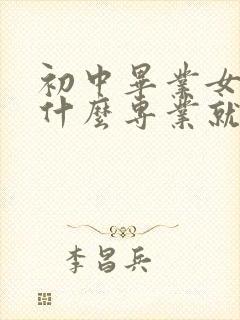 初中畢業女
什麼專業就
李昌兵